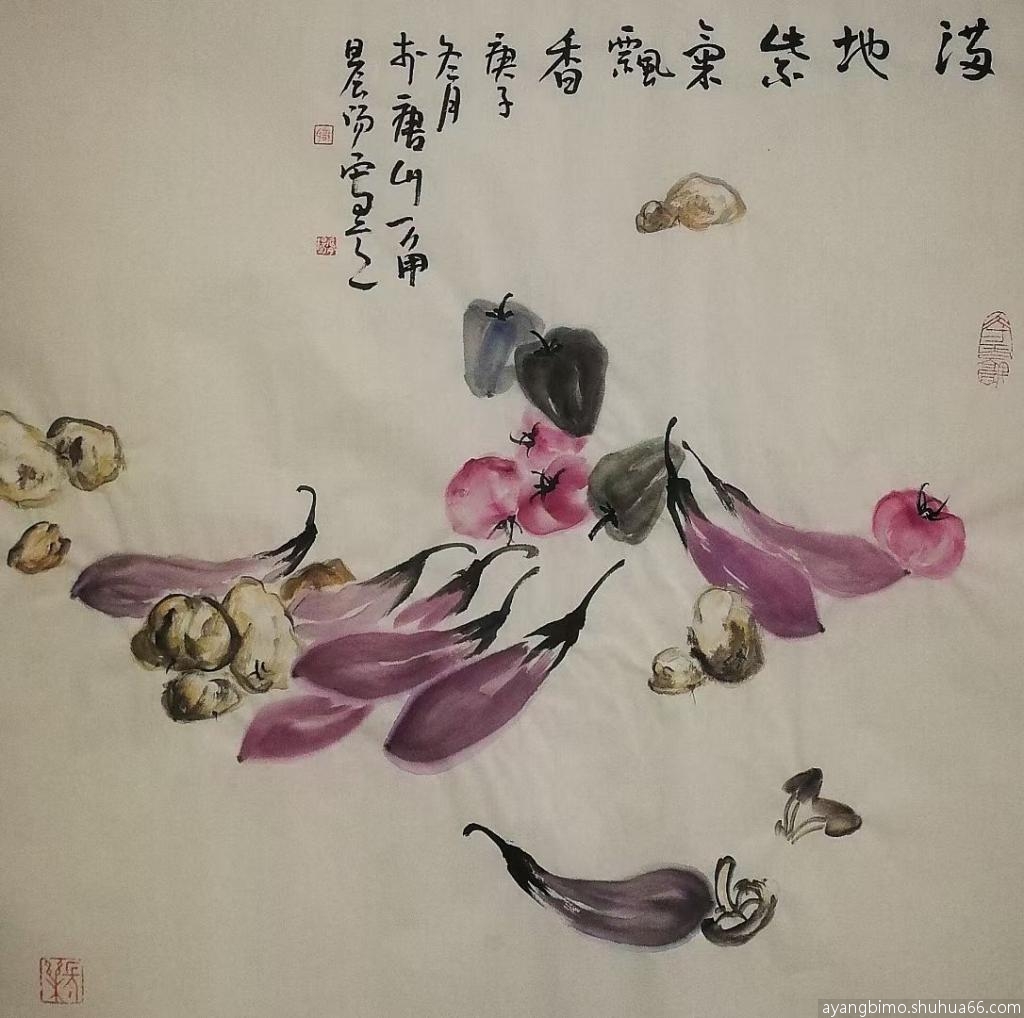 滿地紫氣飄香
庚子
冬月
於唐山一角
晨陽雪墨
ayangbimo.shuhua66.com